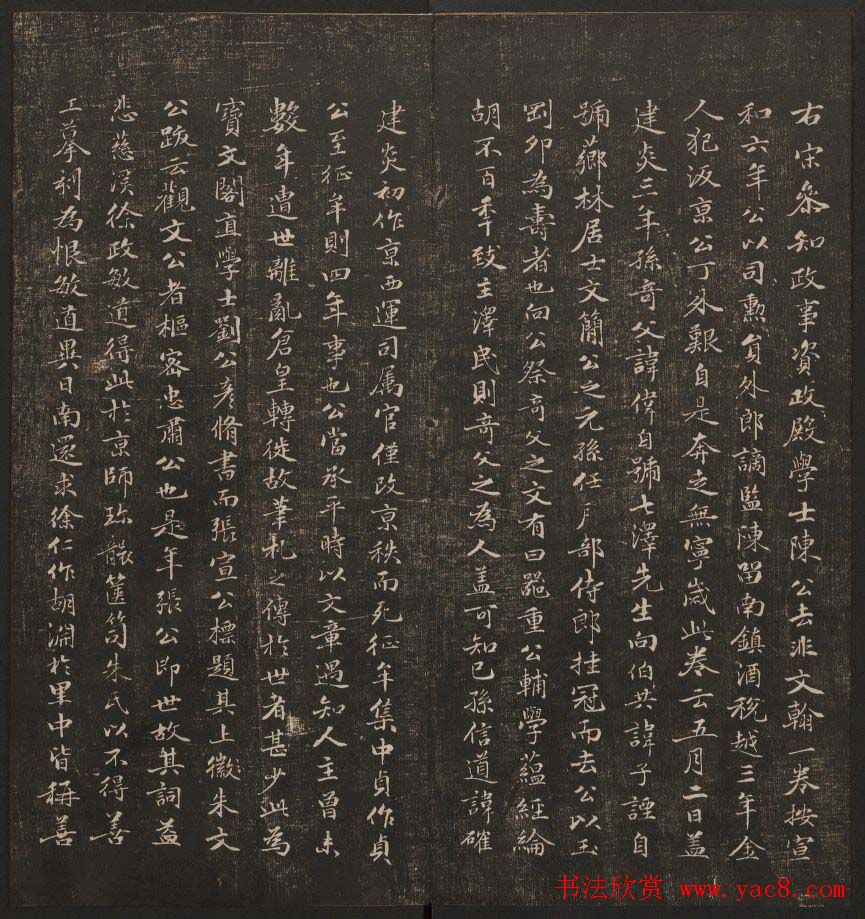 右宋參知政事資政殿學士陳公去非文翰一券按宣
和六年公以司勲負外郎謫監陳畱南鎮酒稅越三年金
人犯汳京公丁外艱自是奔走無寧歲此卷云五月二日盖
建炎三年孫竒父諱偉自號七澤先生向伯共諱子諲自
號薌林居士文簡公之元孫任戶部侍郎挂冠而去公以玉
罰卯為壽者也向公祭竒父之文有曰噐重公輔學蘊經綸
胡不百年致主澤民則竒父之為人盖可知已孫信道諱確
建炎初作京西運司属官僅改京秩而死征牟集中貞作貞
公至征牟則四年事也公當承平時以文章遇知人主曾未
數年遭世離亂倉皇轉徙故筆札之傳於世者甚少此為
寶文閣直學士劉公彦脩書而張宣公標題其上徽朱文
公跋云觀文公者樞密忠肅公也是年張公即世故其詞益
悲慈溪徐政敏道得此於京師珎襲篋笥朱氏以不得善
工摹刋為恨敏道異日南還求徐仁作胡淵於里中皆稱善
书法欣赏 www.yac8.com